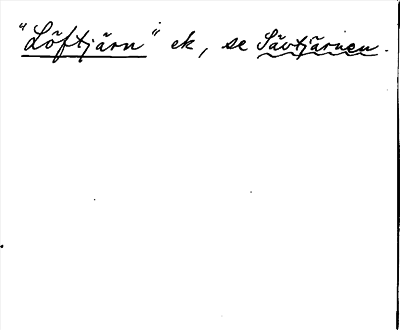 "Löftjärn" ek, se Sävtjärnen.